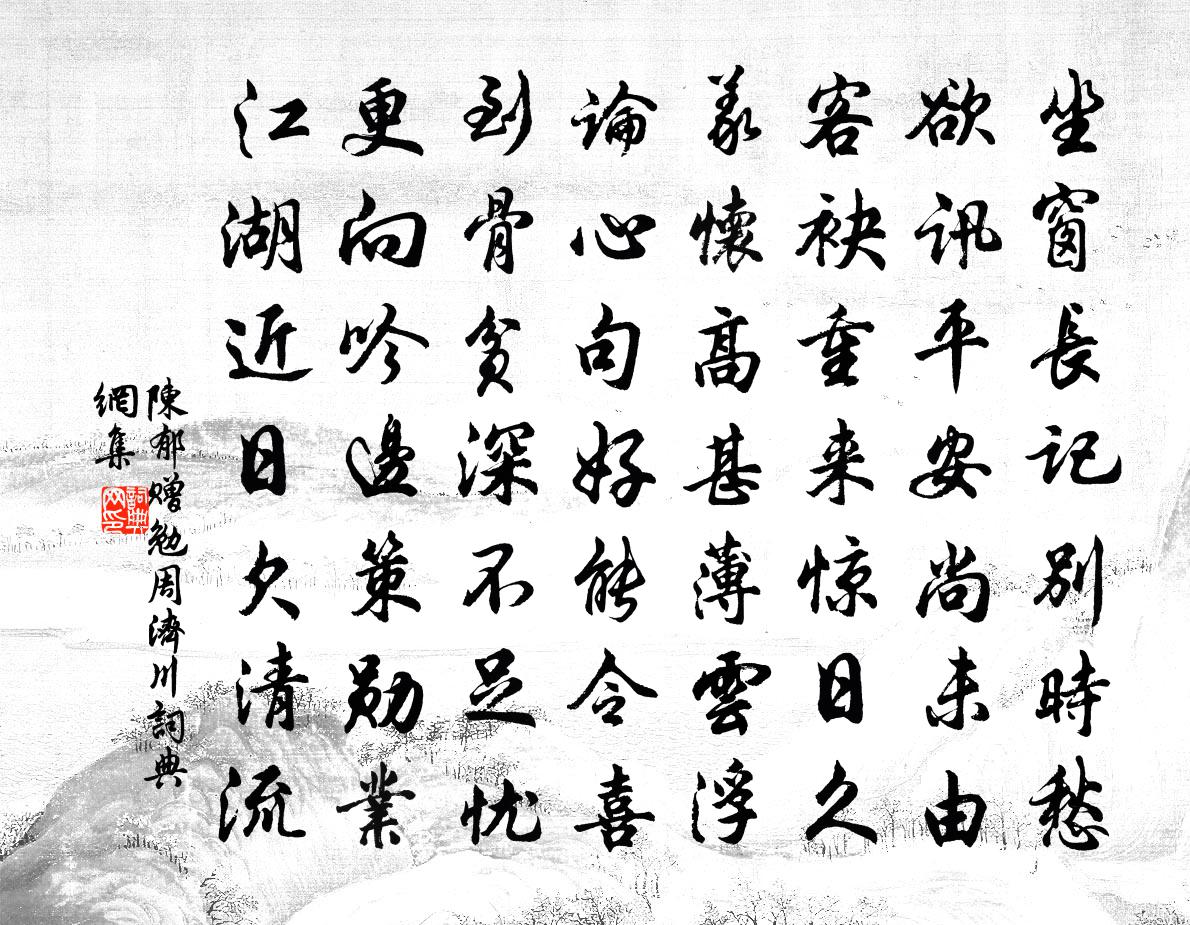 坐窗長記別時愁
欲訊平安尚未由
客袂重来惊日久
義懷高甚薄雲浮
論心句好能令喜
到骨貧深不足忧
更向吟邊策勋業
江湖近日欠清流
陳郁贈勉周濟川詞典
網集
詞典
网印